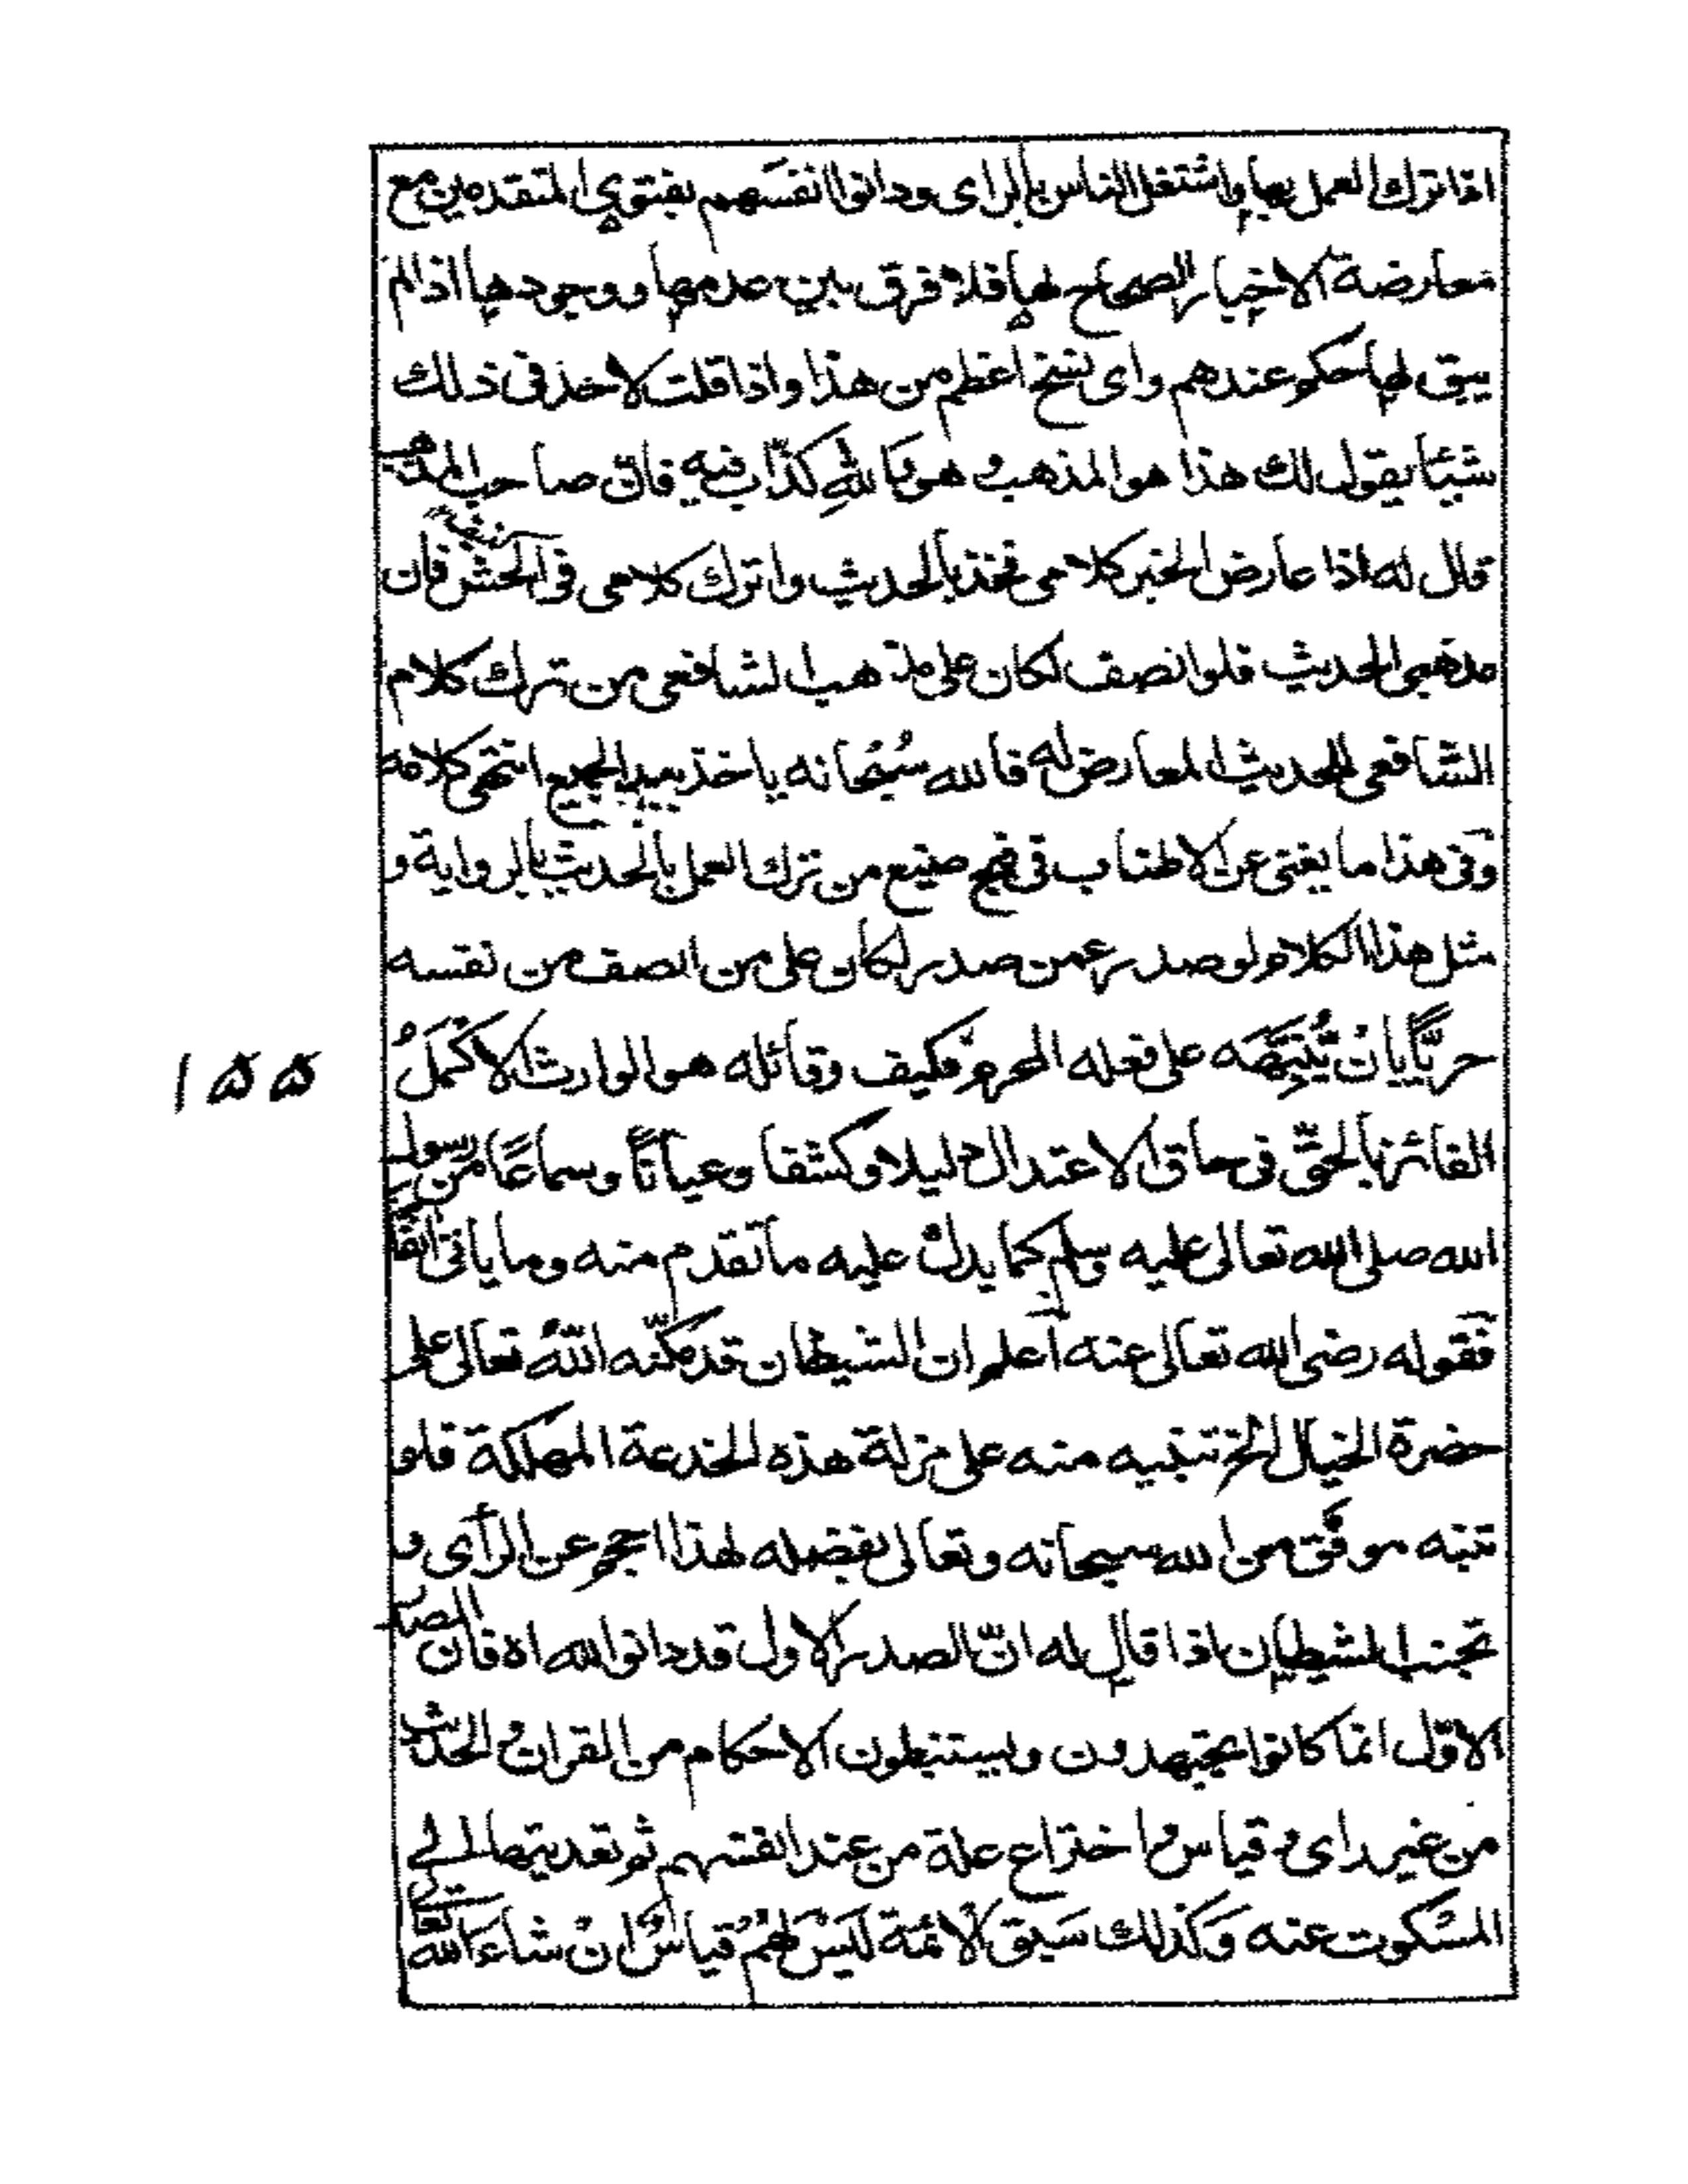 اذا ترك العمل بها واشتغل الناس بالراى ودانوا انفسهم بفتوى المتقدمين مع
معارضة الاخبار الصحاح لها فلا فرق بين عدمها ووجودها اذا لم
يبق لها حكم عندهم واى نسخ اعظم من هذا واذا قلت لاحد فى ذلك
شيئا يقول لك هذا هو المذهب وهو والله كذاب فيه فان صاحب المذهب
قال له اذا عارض الخبر كلامى فخذ بالحديث واترك كلامى فى الحش فان
مذهبى الحديث فلو انصف لكان على مذهب الشافعى من ترك كلام
الشافعى للحديث المعارض له فالله سُبْحانه ياخذ بيد الجميع انتهى كلامه
وفى هذا ما يغنى عن الاطناب فى قبح صنيع من ترك العمل بالحديث بالرواية و
مثل هذا الكلام لو صدر عمن صدر لكان على من انصف من نفسه
حريًّا بان يُنَبِّهَه على فعله المحرم فكيف وقائله هو الوارث الاكْمَلُ
الفائز بالحقّ فى حاق الاعتدال دليلا وكشفا وعيانًا وسماعًا من رسول
الله صلى الله تعالى عليه وسلم كما يدل عليه ما تقدم منه وما ياتى انفًا
فقوله رضى الله تعالى عنه اعلم ان الشيطان قد مكّنه اللهُ تعالى على
حضرة الخيال الخ تنبيه منه على مزلة هذه الخدعة المهلكة فلو
تنبه موفّق من الله سبحانه وتعالى بفضله لهذا احجم عن الرأى و
تجنب الشيطان اذا قال له انّ الصدر الاول قد دانوا لله اه فان الصدر
الاوّل انما كانوا يجتهدون ويستنبطون الاحكام من القران والحديث
من غير راى وقياس واختراع علة من عند انفسهم ثم تعديتها الى
المسْكوت عنه وَكذلك سَبق الائمة لَيْسَ لهُمْ قياسٌ ان شاءَ الله تعالى
۱۵۵